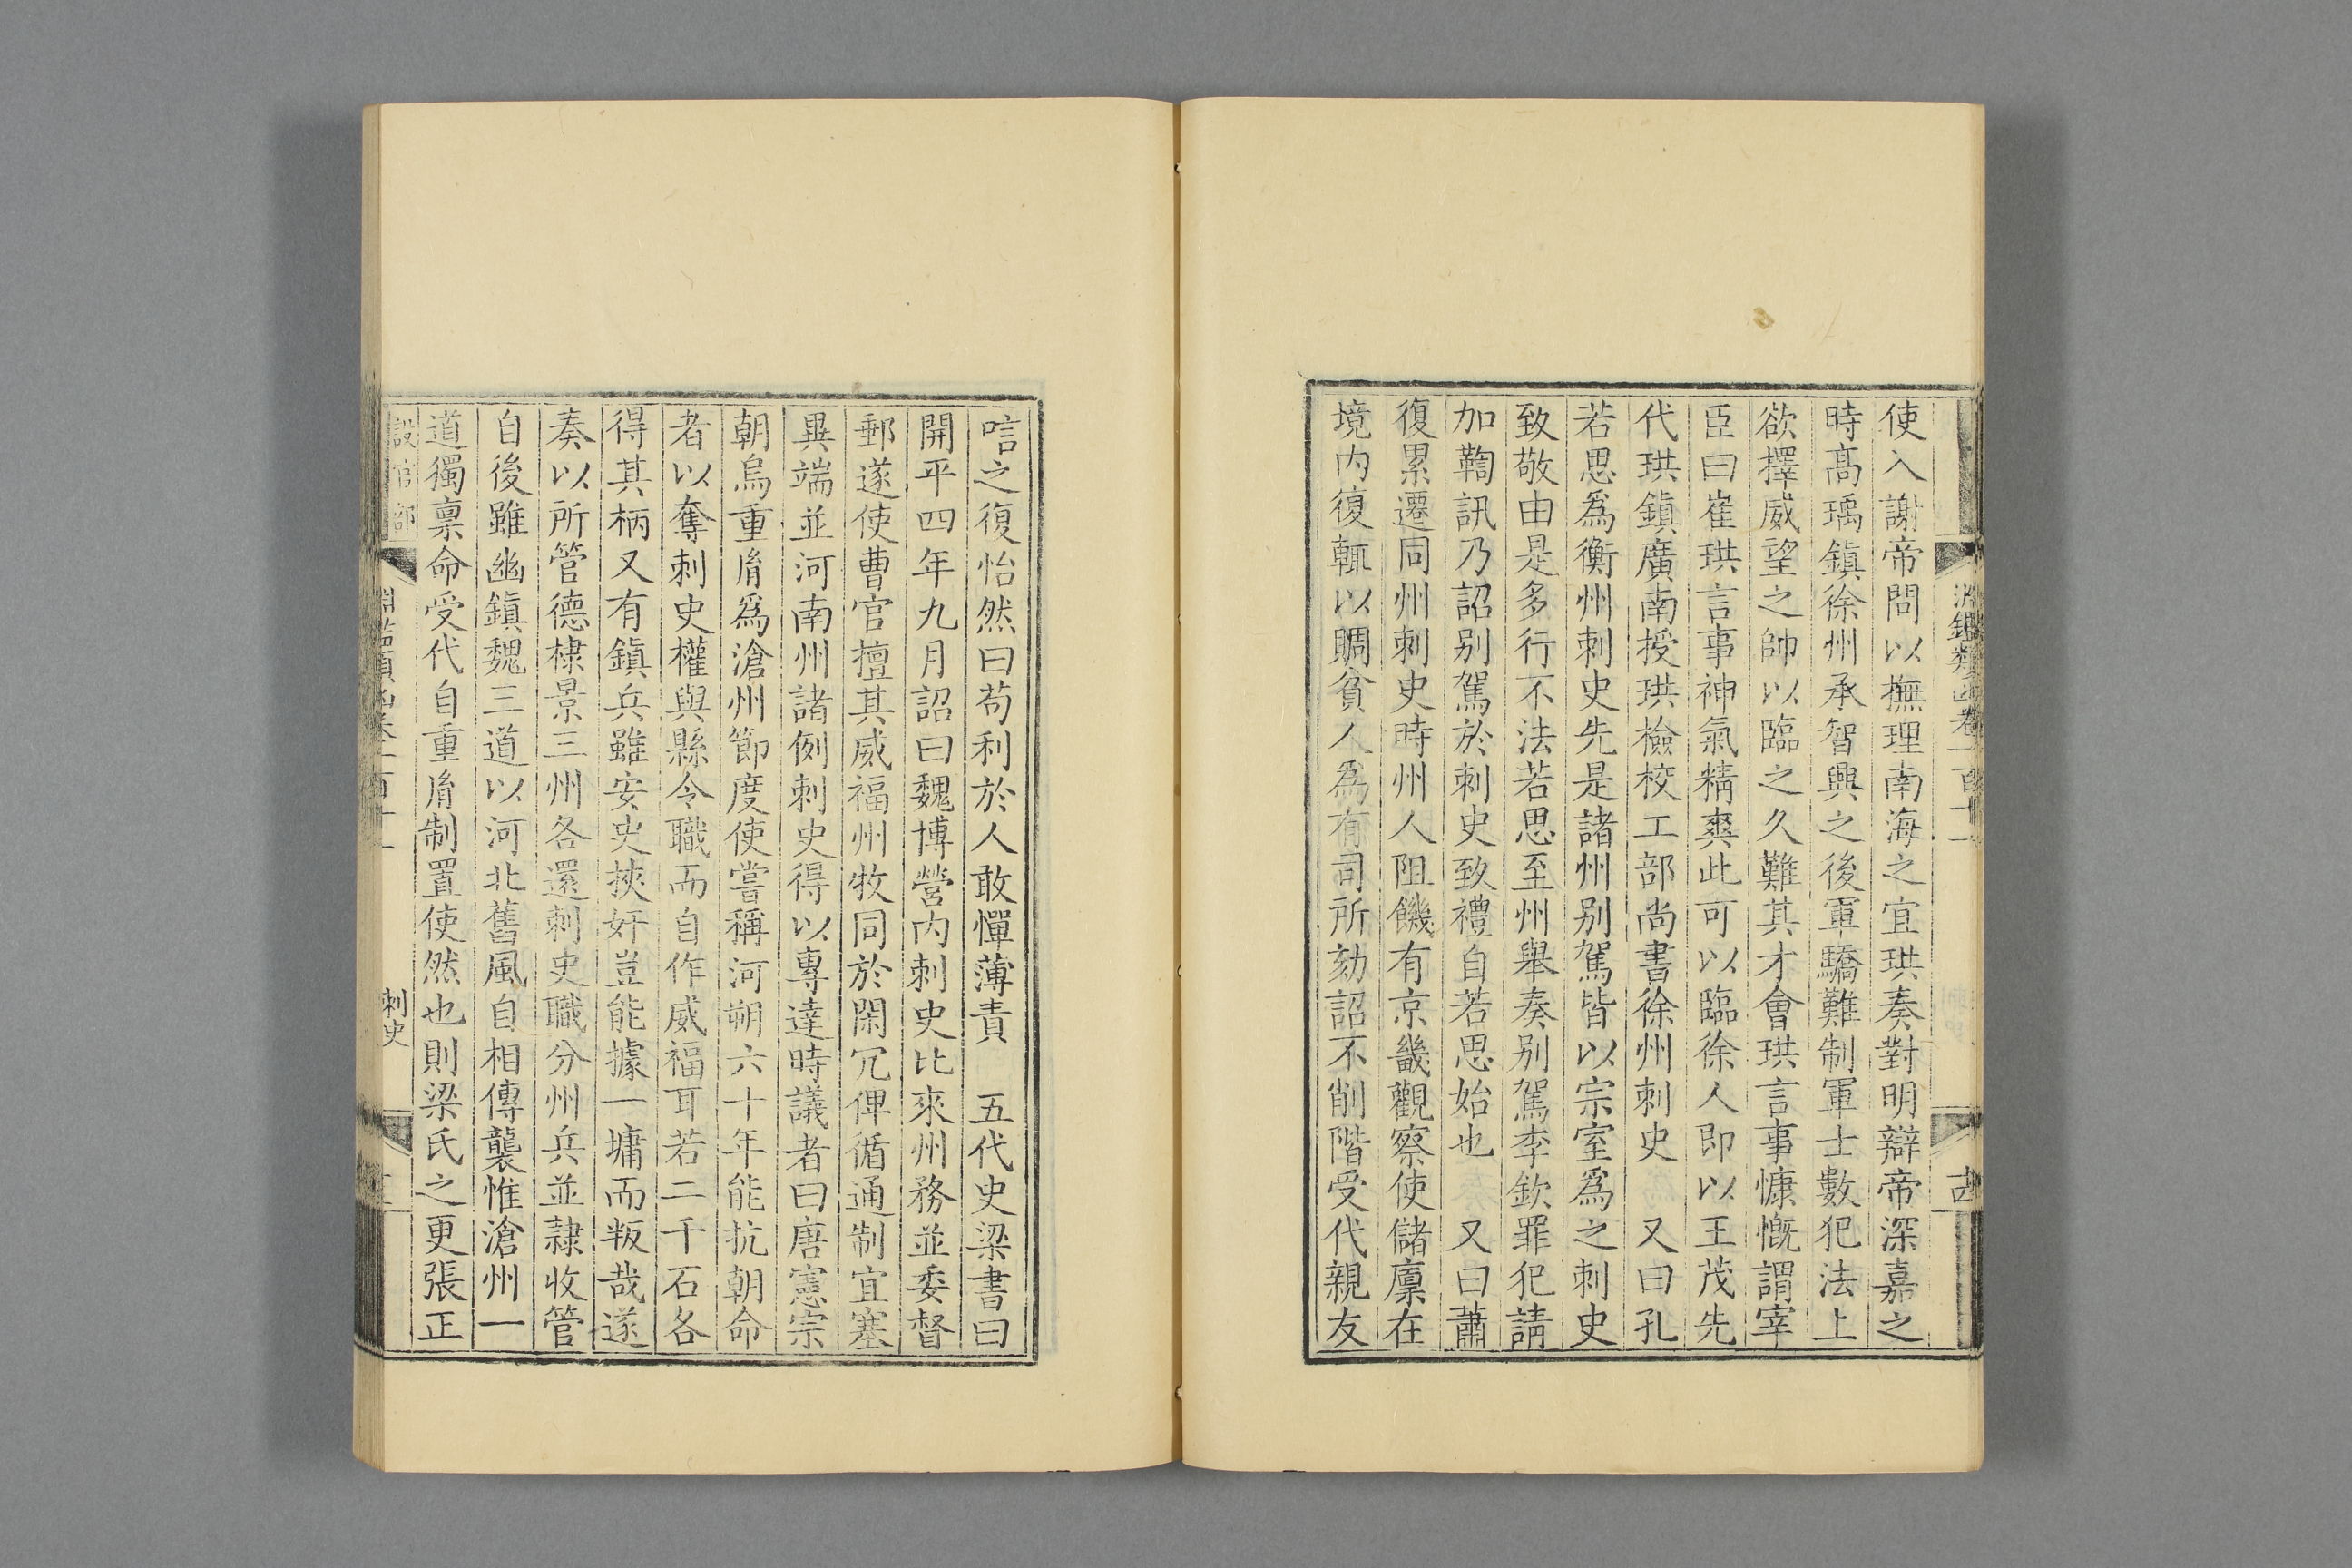 淵鑑類函卷一百十一
使入謝帝問以撫理南海之宜珙奏對明辯帝深嘉之
時高瑀鎮徐州承智興之後軍驕難制軍士數犯法上
欲擇威望之帥以臨之久難其才會珙言事慷慨謂宰
臣曰崔珙言事神氣精爽此可以臨徐人即以王茂先
代珙鎮廣南授珙檢校工部尚書徐州刺史 又曰孔
若思爲衡州刺史先是諸州别駕皆以宗室爲之刺史
致敬由是多行不法若思至州舉奏别駕李欽罪犯請
加鞫訊乃詔别駕於刺史致禮自若思始也 又曰蕭
復累遷同州刺史時州人阻饑有京畿觀察使儲廩在
境内復輒以賙貧人爲有司所劾詔不削階受代親友
唁之復怡然曰苟利於人敢憚薄責 五代史梁書曰
開平四年九月詔曰魏博營内刺史比來州務並委督
郵遂使曹官擅其威福州牧同於閑冗俾循通制宜塞
異端並河南州諸例刺史得以專達時議者曰唐憲宗
朝烏重胤爲滄州節度使嘗稱河朔六十年能抗朝命
者以奪刺史權與縣令職而自作威福耳若二千石各
得其柄又有鎮兵雖安史挾奸豈能據一墉而叛哉遂
奏以所管德棣景三州各還刺史職分州兵並隷收管
自後雖幽鎮魏三道以河北舊風自相傳襲惟滄州一
道獨稟命受代自重胤制置使然也則梁氏之更張正
設官部 刺史